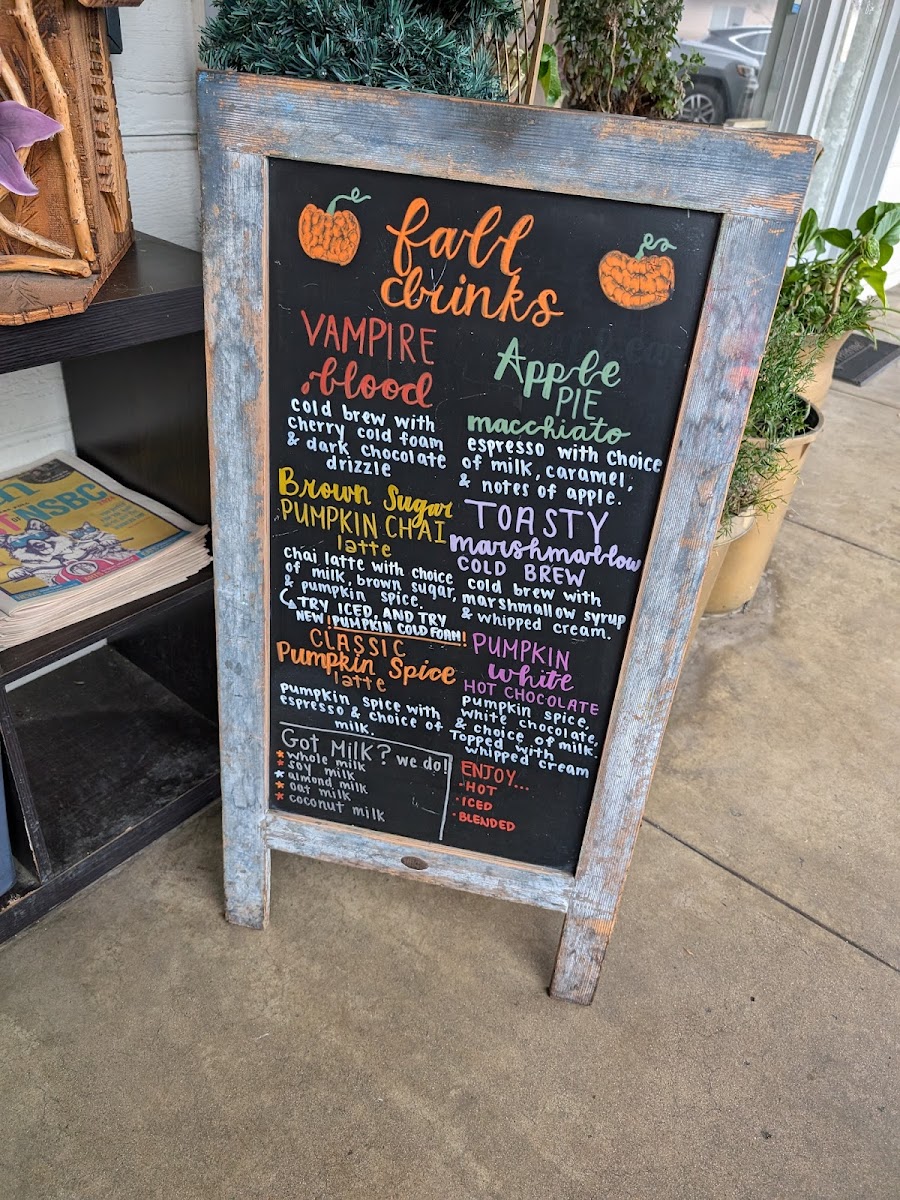 fall
drinks
VAMPIRE
blood
cold brew with
cherry cold foam
& dark chocolate
drizzle
Apple
PIE
macchiato
espresso with choice
of milk, caramel,
& notes of apple.
Brown Sugar
PUMPKIN CHAI
latte
chai latte with choice
of milk, brown sugar,
& pumpkin spice.
TRY ICED, AND TRY
NEW! PUMPKIN COLD FOAM!
TOASTY
marshmallow
COLD BREW
cold brew with
marshmallow syrup
& whipped cream.
CLASSIC
Pumpkin Spice
latte
pumpkin spice with
espresso & choice of
milk.
PUMPKIN
White
HOT CHOCOLATE
pumpkin spice,
white chocolate,
& choice of milk.
Topped with
whipped cream
Got MilK? we do!
* whole milk
* soy milk
* almond milk
* oat milk
* coconut milk
ENJOY...
· HOT
· ICED
· BLENDED
NSBC